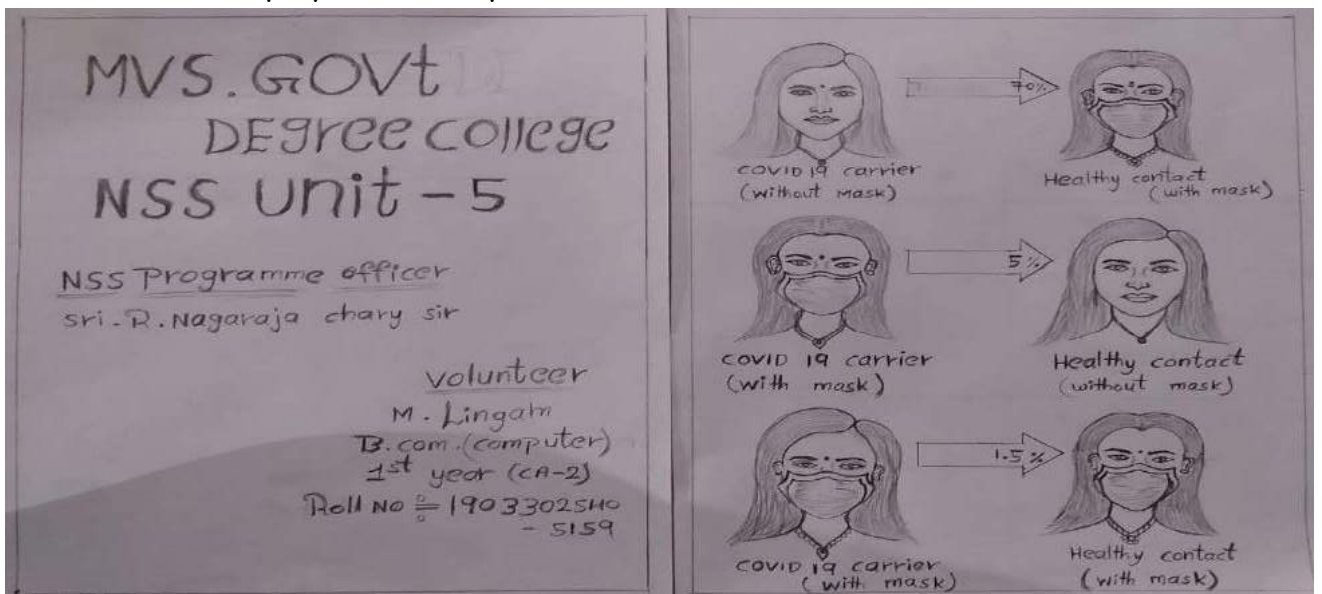 MVS. GOVt
DEgree college
NSS Unit - 5
NSS Programme officer
sri. R. Nagaraja chary sir
volunteer
M. Lingam
B.com. (computer)
1st year (CA-2)
Roll No :- 19033025440
- 5159
70%
COVID 19 carrier
(without Mask)
Healthy contact
(with mask)
5%
COVID 19 carrier
(with mask)
Healthy contact
(without mask)
1.5%
COVID 19 carrier
(with mask)
Healthy contact
(with mask)